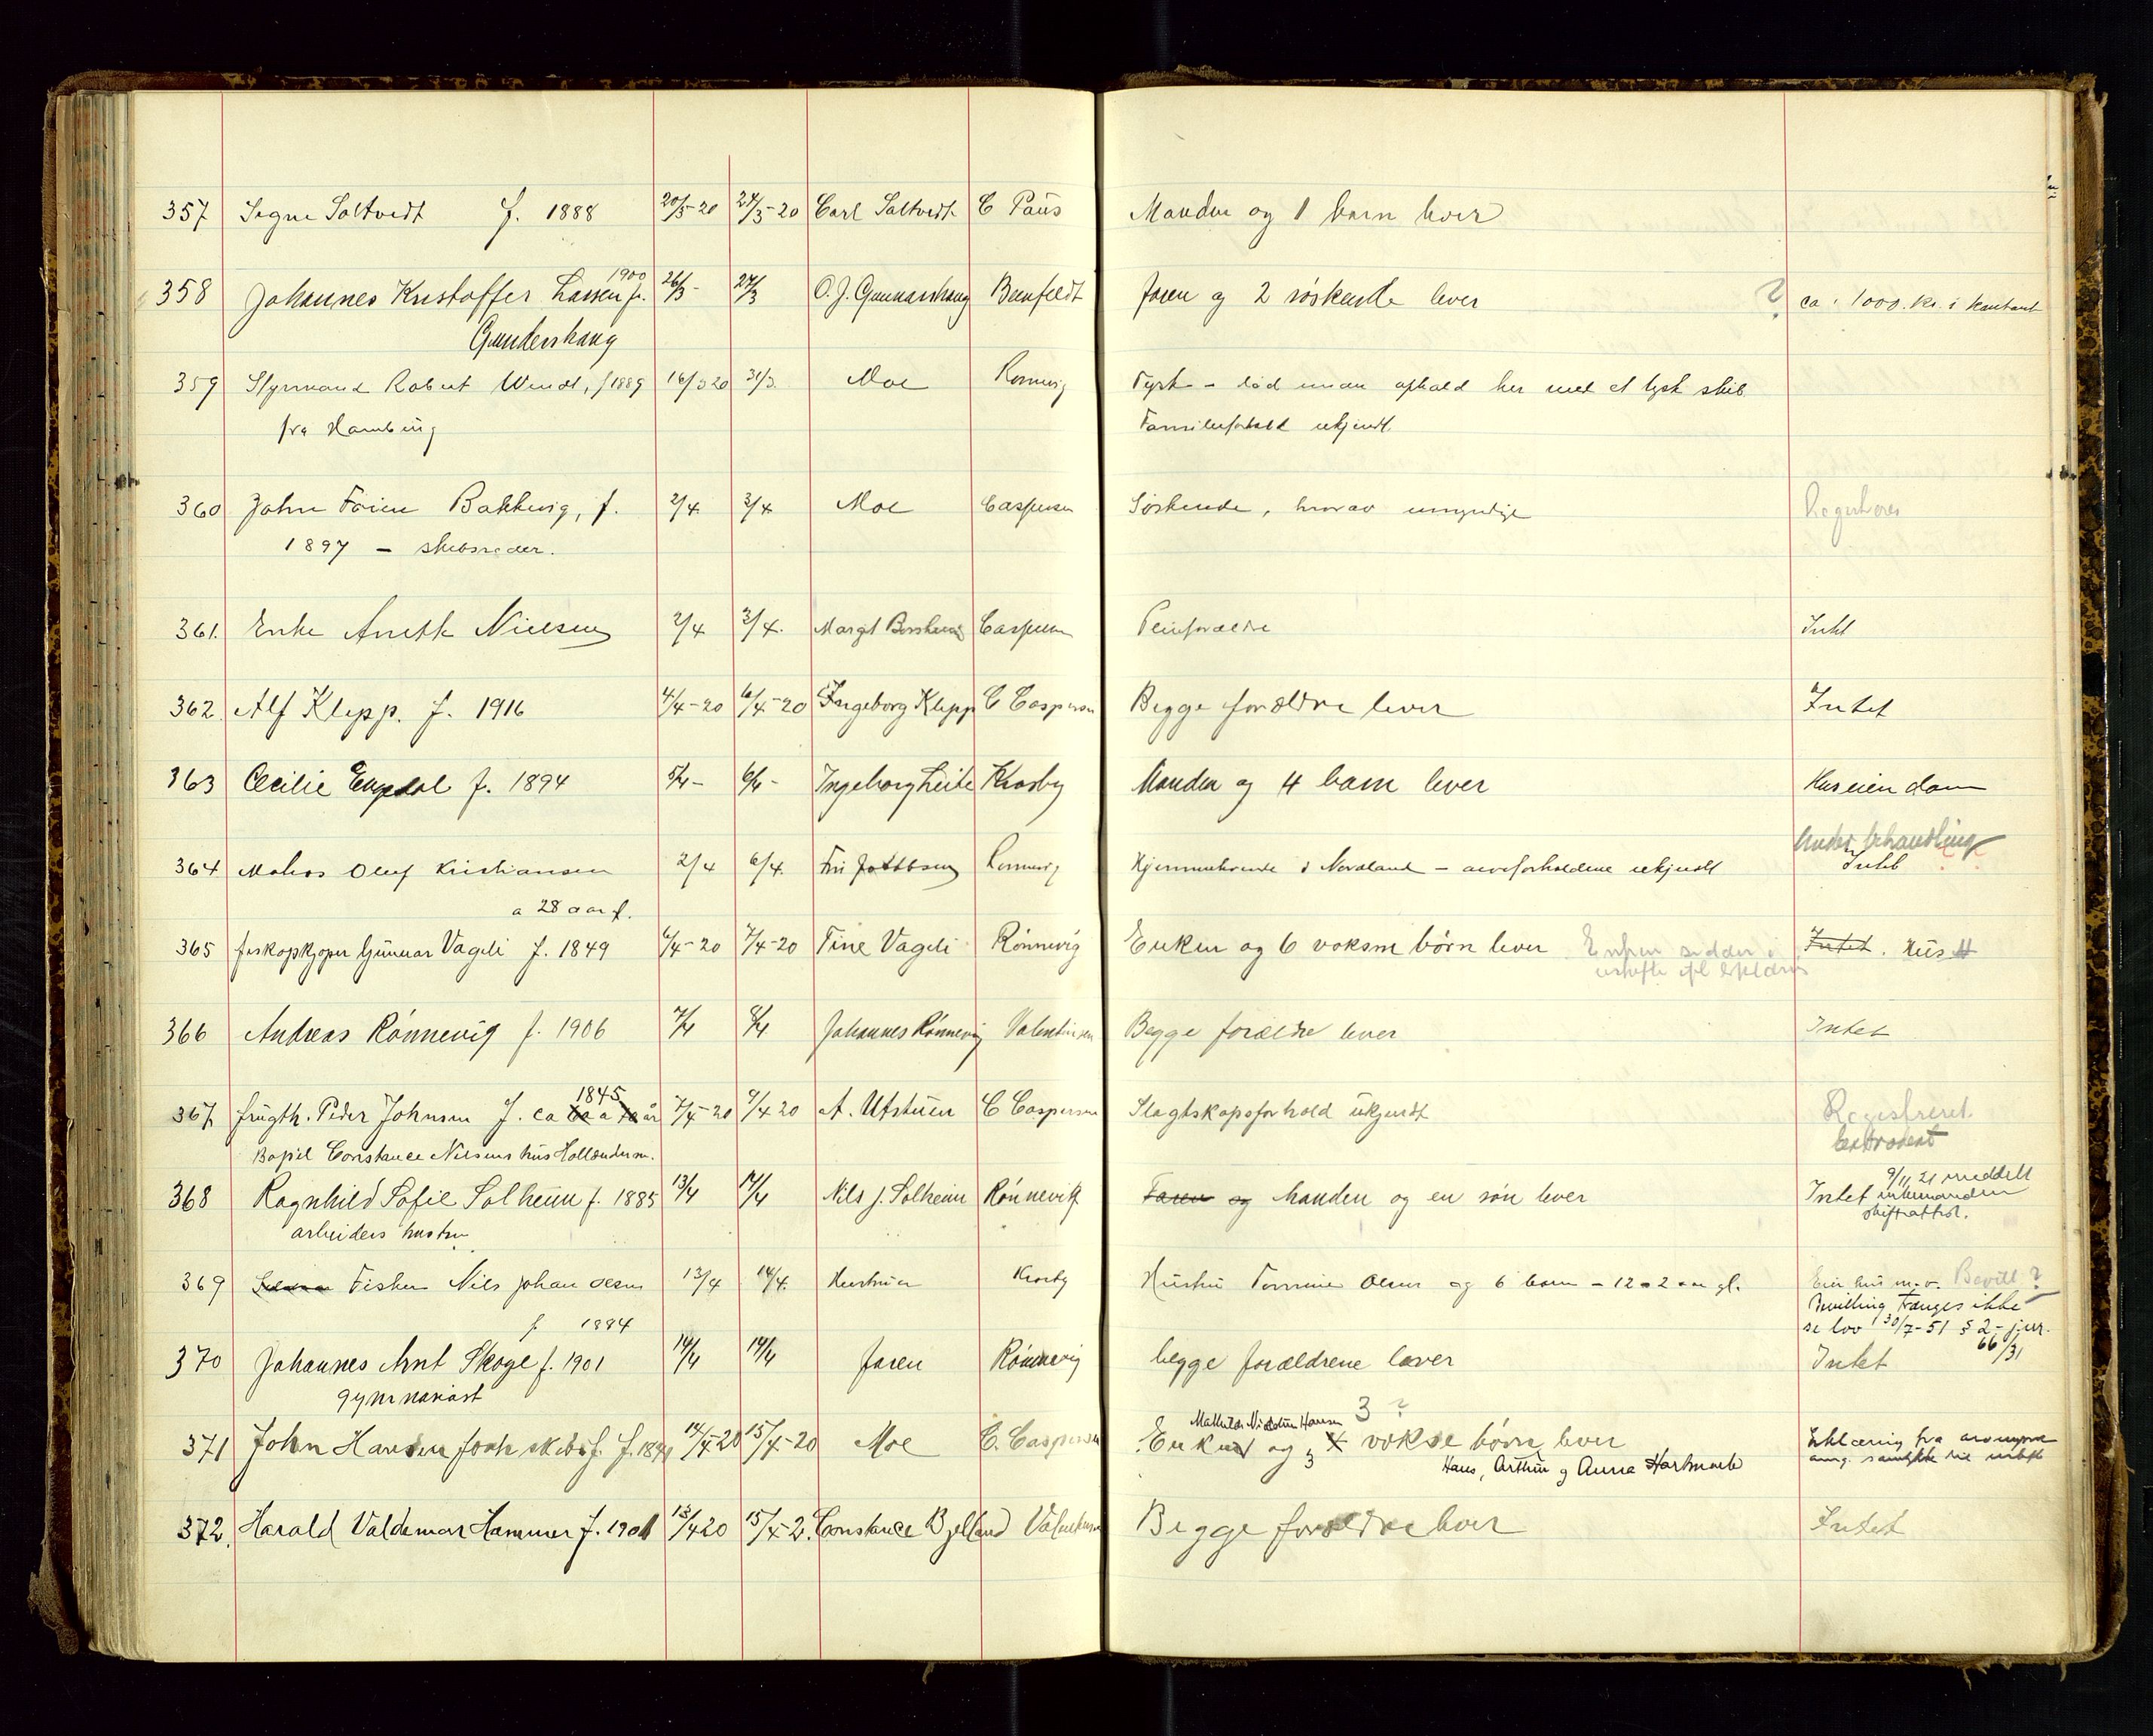 357 Signe Saltvedt f. 1888 20/3-20 24/3-20 Carl Saltvedt C Paus Manden og 1 barn lever
1900
358 Johannes Kristoffer Lassen f. 26/3- 27/3 O. J. Gunnarshaug Faren og 2 søskende lever ? ca. 1000. kr. i kontant
Gundershaug
359 Styrmand Robert Wendt, f 1889 16/3 20 31/3. Moe Rønnevig Tysk - død under ophold her med et tysk skib.
fra Hamburg Familieforhold ukjendt.
360 John Bakkevig, f. 2/4 3/4 Moe Caspersen Søskende, hvorav umyndige Registreres
1897 - skibsreder.
361. Enke Anethe Nielsen 2/4 3/4. Margit Caspersen Pleieforældre Intet
362. Alf Klepp. f. 1916 4/4-20 6/4-20 Ingeborg Klepp C Caspersen Begge forældre lever Intet
363 Cecilie Engdal f. 1894 5/4- 6/4- Ingeborg Leite Krosby Manden og 4 barn lever Huseiendom
Under behandling
364 Oluf Kristiansen 2/4 6/4. Fru Rønnevig Hjemmehørende i Nordland - arveforholdene ukjendt Intet
a 28 aar f.
365 fiskopkjøper Gunnar Vageli f. 1849 6/4-20 7/4-20 Tine Vageli Rønnevig Enken og 6 voksne børn lever Enken sidder i Intet. Hus
uskifte
366 Andreas Rønnevig f. 1906 7/4 8/4 Johannes Rønnevig Valentinsen Begge forældre lever Intet
1845
367 frugth. Peder Johnsen f. ca 7/4-20 9/4 20 A. Utstuen C Caspersen Slagtskapsforhold ukjendt Registreret
Bopæl Constance Nilsens hus
9/11 21 meddelt
368 Ragnhild Sofie Solheim f. 1885 13/4 14/4 Nils J. Solheim Rønnevik Faren og Manden og en søn lever Intet enkemanden
arbeiders hustru skifteattest.
369 Fisker Nils Johan Olsen 13/4 14/4. Hustruen Krosby Hustru Tomine Olsen og 6 barn - 12 a 2 aar gl. Eier hus m. v. Bevill?
Bevilling trænges ikke
f 1884 se lov 30/7-51 § 2 - jur.
66/31
370 Johannes Arnt Skoge f. 1901 14/4 14/4 Faren Rønnevig begge forældrene lever Intet
gymnasiast
Mathilde Hansen 3 ?
371 John Hansen forh. skibsf. 14/4-20 15/4-20 Moe C. Caspersen Enken og 3 4 voksne børn lever Erklæring fra
Hans, Arthur og Anna Hartmark
372. Harald Valdemar Hammer f. 1901 13/4 20 15/4-2. Constance Bjelland Valentinsen Begge forældre lever Intet